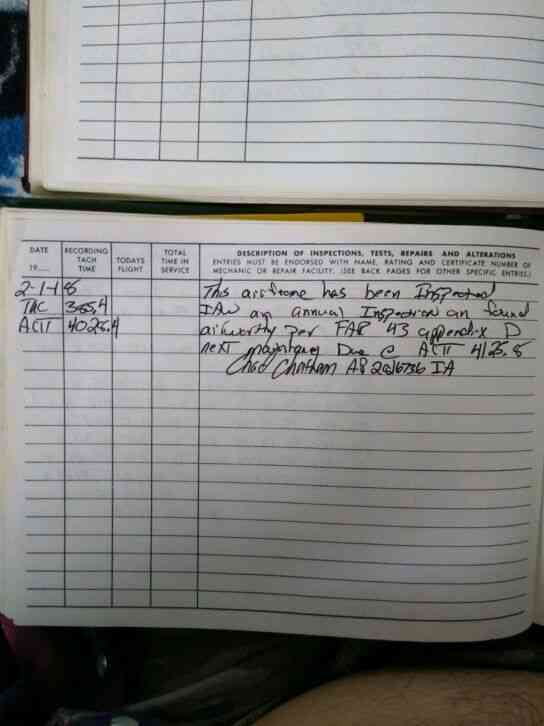 DATE
19......
RECORDING
TACH
TIME
TODAYS
FLIGHT
TOTAL
TIME IN
SERVICE
DESCRIPTION OF INSPECTIONS, TESTS, REPAIRS AND ALTERATIONS
ENTRIES MUST BE ENDORSED WITH NAME, RATING AND CERTIFICATE NUMBER OF
MECHANIC OR REPAIR FACILITY. (SEE BACK PAGES FOR OTHER SPECIFIC ENTRIES.)
2-1-18 This airframe has been Inspected
IAW an annual Inspection an found
ACTT 4025.4 airworthy per FAR 43 appendix D
next Due @ ACTT 4125.
IA